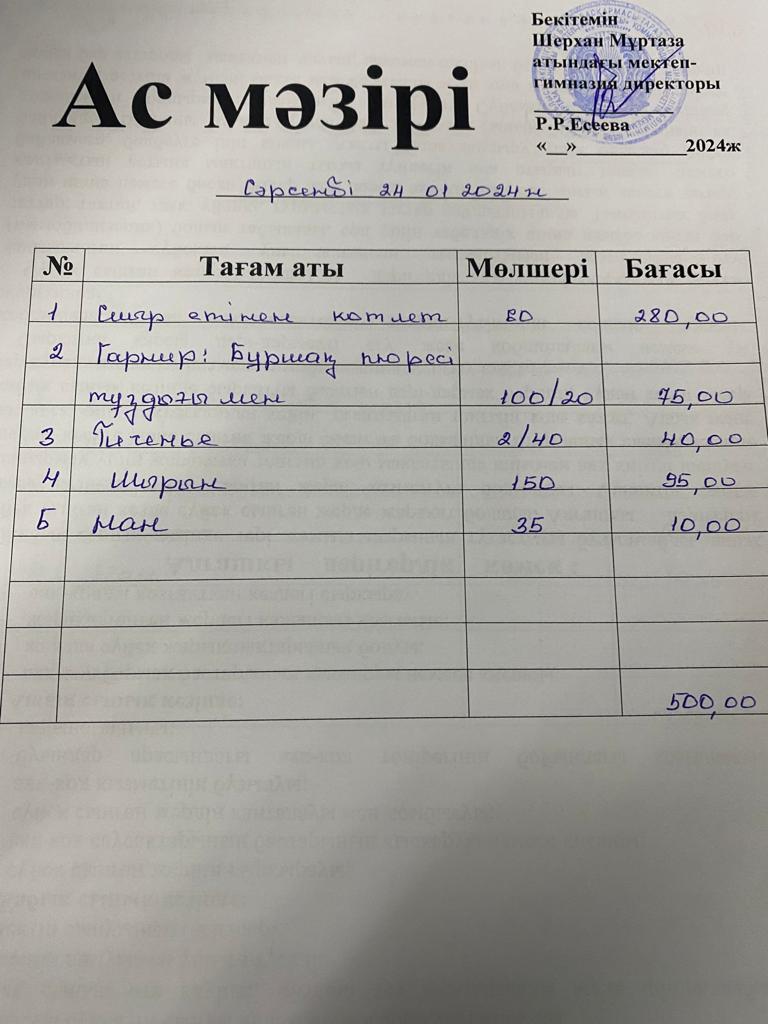 Бекітемін
Шерхан Мұртаза
атындағы мектеп-
гимназия директоры
Ас мәзірі
Р.Р.Есеева
«__»____________2024ж
Сәрсенбі 24 01 2024ж
№ Тағам аты Мөлшері Бағасы
1 Сиыр етінен котлет 80 280,00
2 Гарнир: Бұршақ пюресі
тұздығы мен 100/20 75,00
3 Печенье 2/40 40,00
4 Шырын 150 95,00
5 Нан 35 10,00
500,00